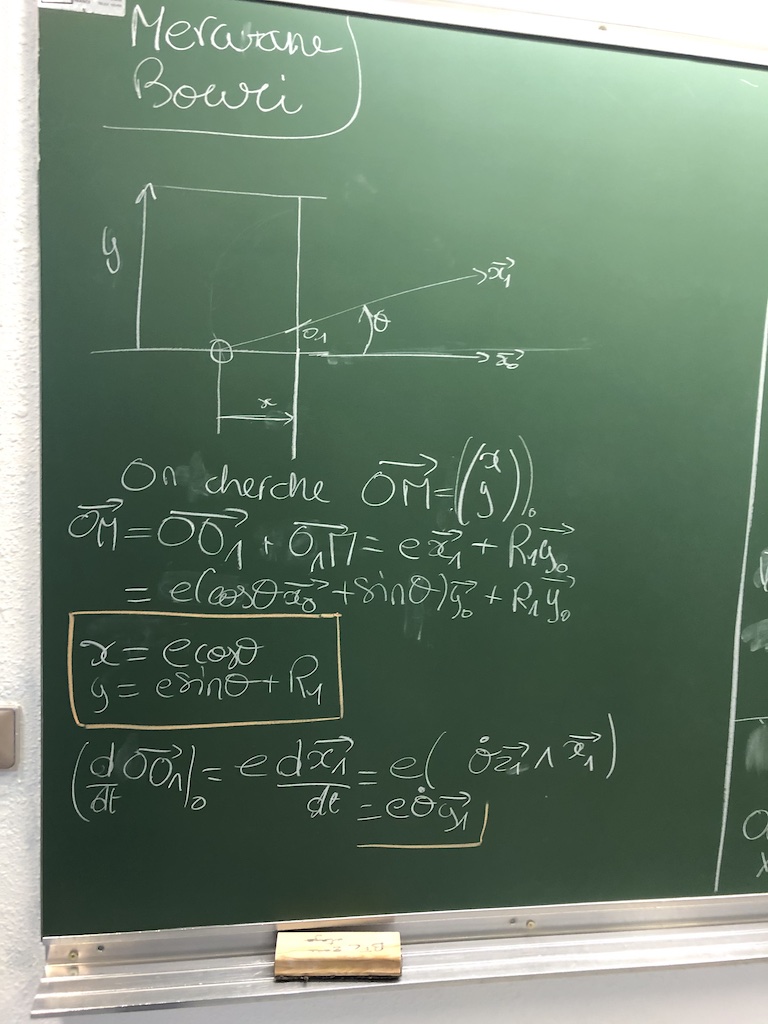 Merwane
Bouri
y
x₁⃗
O₁
θ
x₀⃗
x
On cherche OM⃗ = (x y)₀
OM⃗ = OO₁⃗ + O₁M⃗ = e x₁⃗ + R₁y₀⃗
= e(cosθ x₀⃗ + sinθ)y₀⃗ + R₁y₀⃗
x = e cosθ
y = e sinθ + R₁
(d/dt OO₁⃗)₀ = e dx₁⃗/dt = e( θ̇ z₁⃗ ∧ x₁⃗ )
= e θ̇ y₁⃗